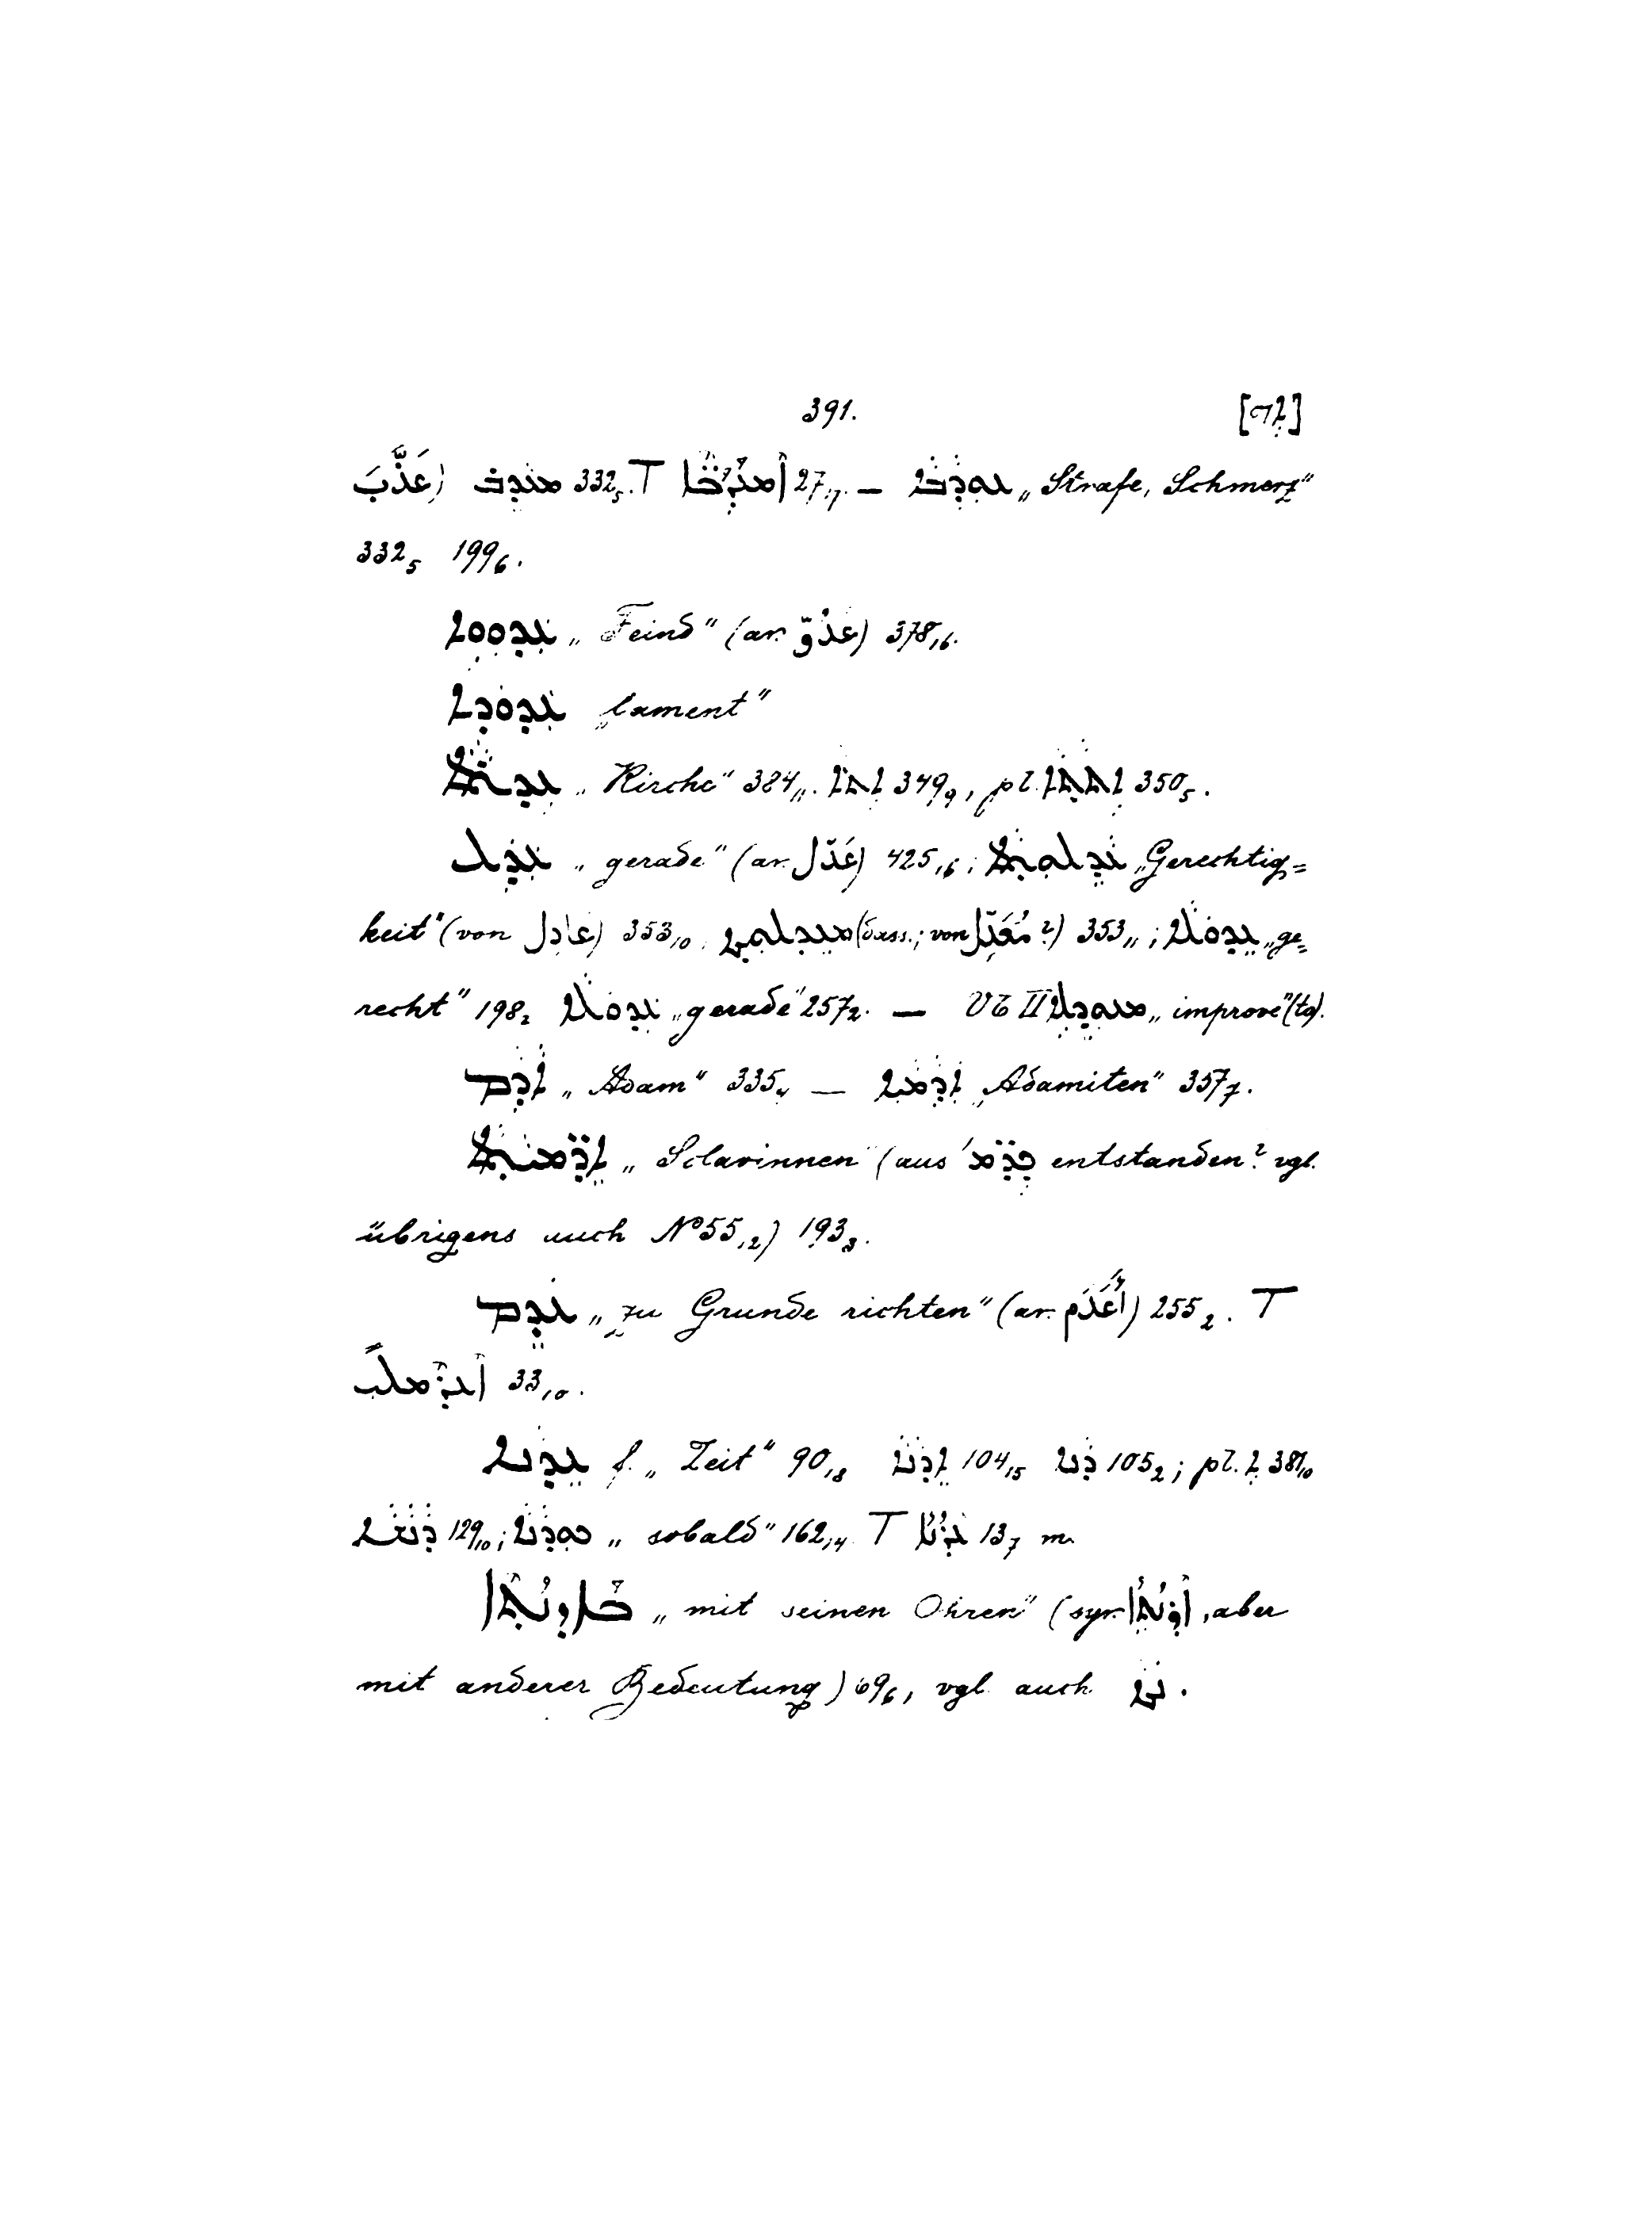 391. [ܐܕ]
عَذَّبَ) ܡܥܕܒ 332₅. T 27,₇. — ܥܘܕܒܐ „Strafe, Schmerz"
332₅ 199₆.
ܥܕܘܘܐ „Feind" (ar. عَدُوّ) 378,₆.
ܥܕܘܕܐ „lament"
ܥܕܬܐ „Kirche" 384,,. ܐܬܐ 349₉, pl. 350₅.
ܥܕܠ „gerade" (ar. عَدّل) 425,₆; ܥܕܠܘܬܐ „Gerechtig=
keit" (von عادِل) 353,₀. (dass.; von مُعَدِّل?) 353,,; ܥܕܘܠܐ „ge=
recht" 198₂ ܥܕܘܠܐ „gerade" 257₂. — Vb II ܡܥܘܕܠܐ „improve" (to).
ܐܕܡ „Adam" 335₄ — ܐܕܡܝܐ „Adamiten" 357₇.
„Sclavinnen" (aus entstanden? vgl.
übrigens auch Nº 55,₂) 193₃.
ܥܕܡ „zu Grunde richten" (ar. أَعْدَم) 255₂. T
33,₀.
ܥܕܢܐ f. „Zeit" 90,₈ ܐܕܢܐ 104,₅ ܕܢܐ 105₂; pl.
129,₀; ܟܘܕܢܐ „sobald" 162,₄ T ܥܕܢܐ 13₇ m.
„mit seinen Ohren" (syr. , aber
mit anderer Bedeutung) 69₆, vgl. auch